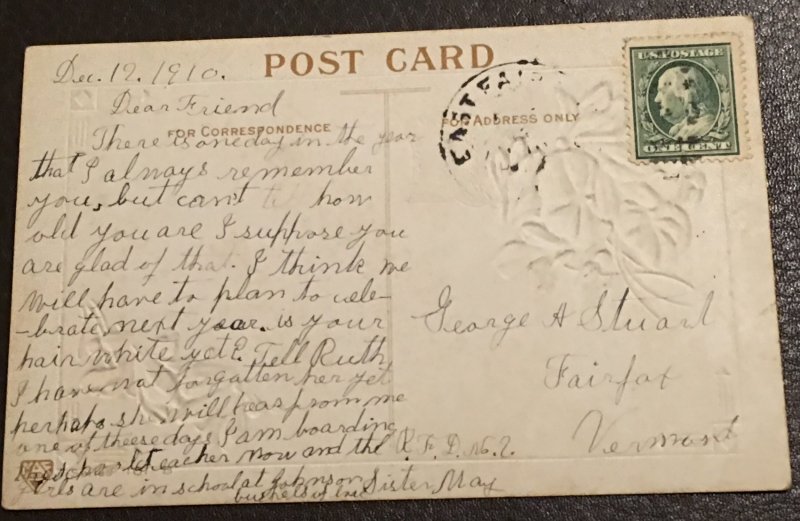 POST CARD
Dec. 12. 1910.
EAST FAI
U.S. POSTAGE
ONE CENT
Dear Friend
FOR CORRESPONDENCE
FOR ADDRESS ONLY
There is one day in the year
that I always remember
you, but can't how
old you are I suppose you
are glad of that. I think we
will have to plan to cele-
-brate next year. is your
hair white yet? Tell Ruth
I have not forgotten her yet
perhaps she will hear from me
one of these days I am boarding
the school teacher now and the
girls are in school at Johnson
bushels of love Sister May
George A Stuart
Fairfax
Vermont
R.F.D. No. 2.